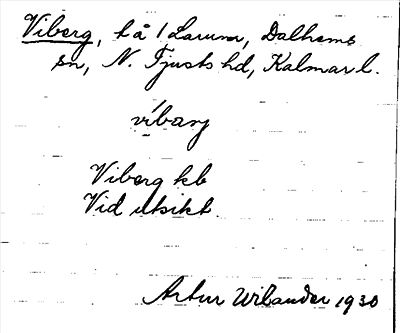 Viberg, t å / Larum, Dalhems
sn, N. Tjusts hd, Kalmar l.
víbarj
Viberg kb
Vid utsikt.
Artur Wilander 1930